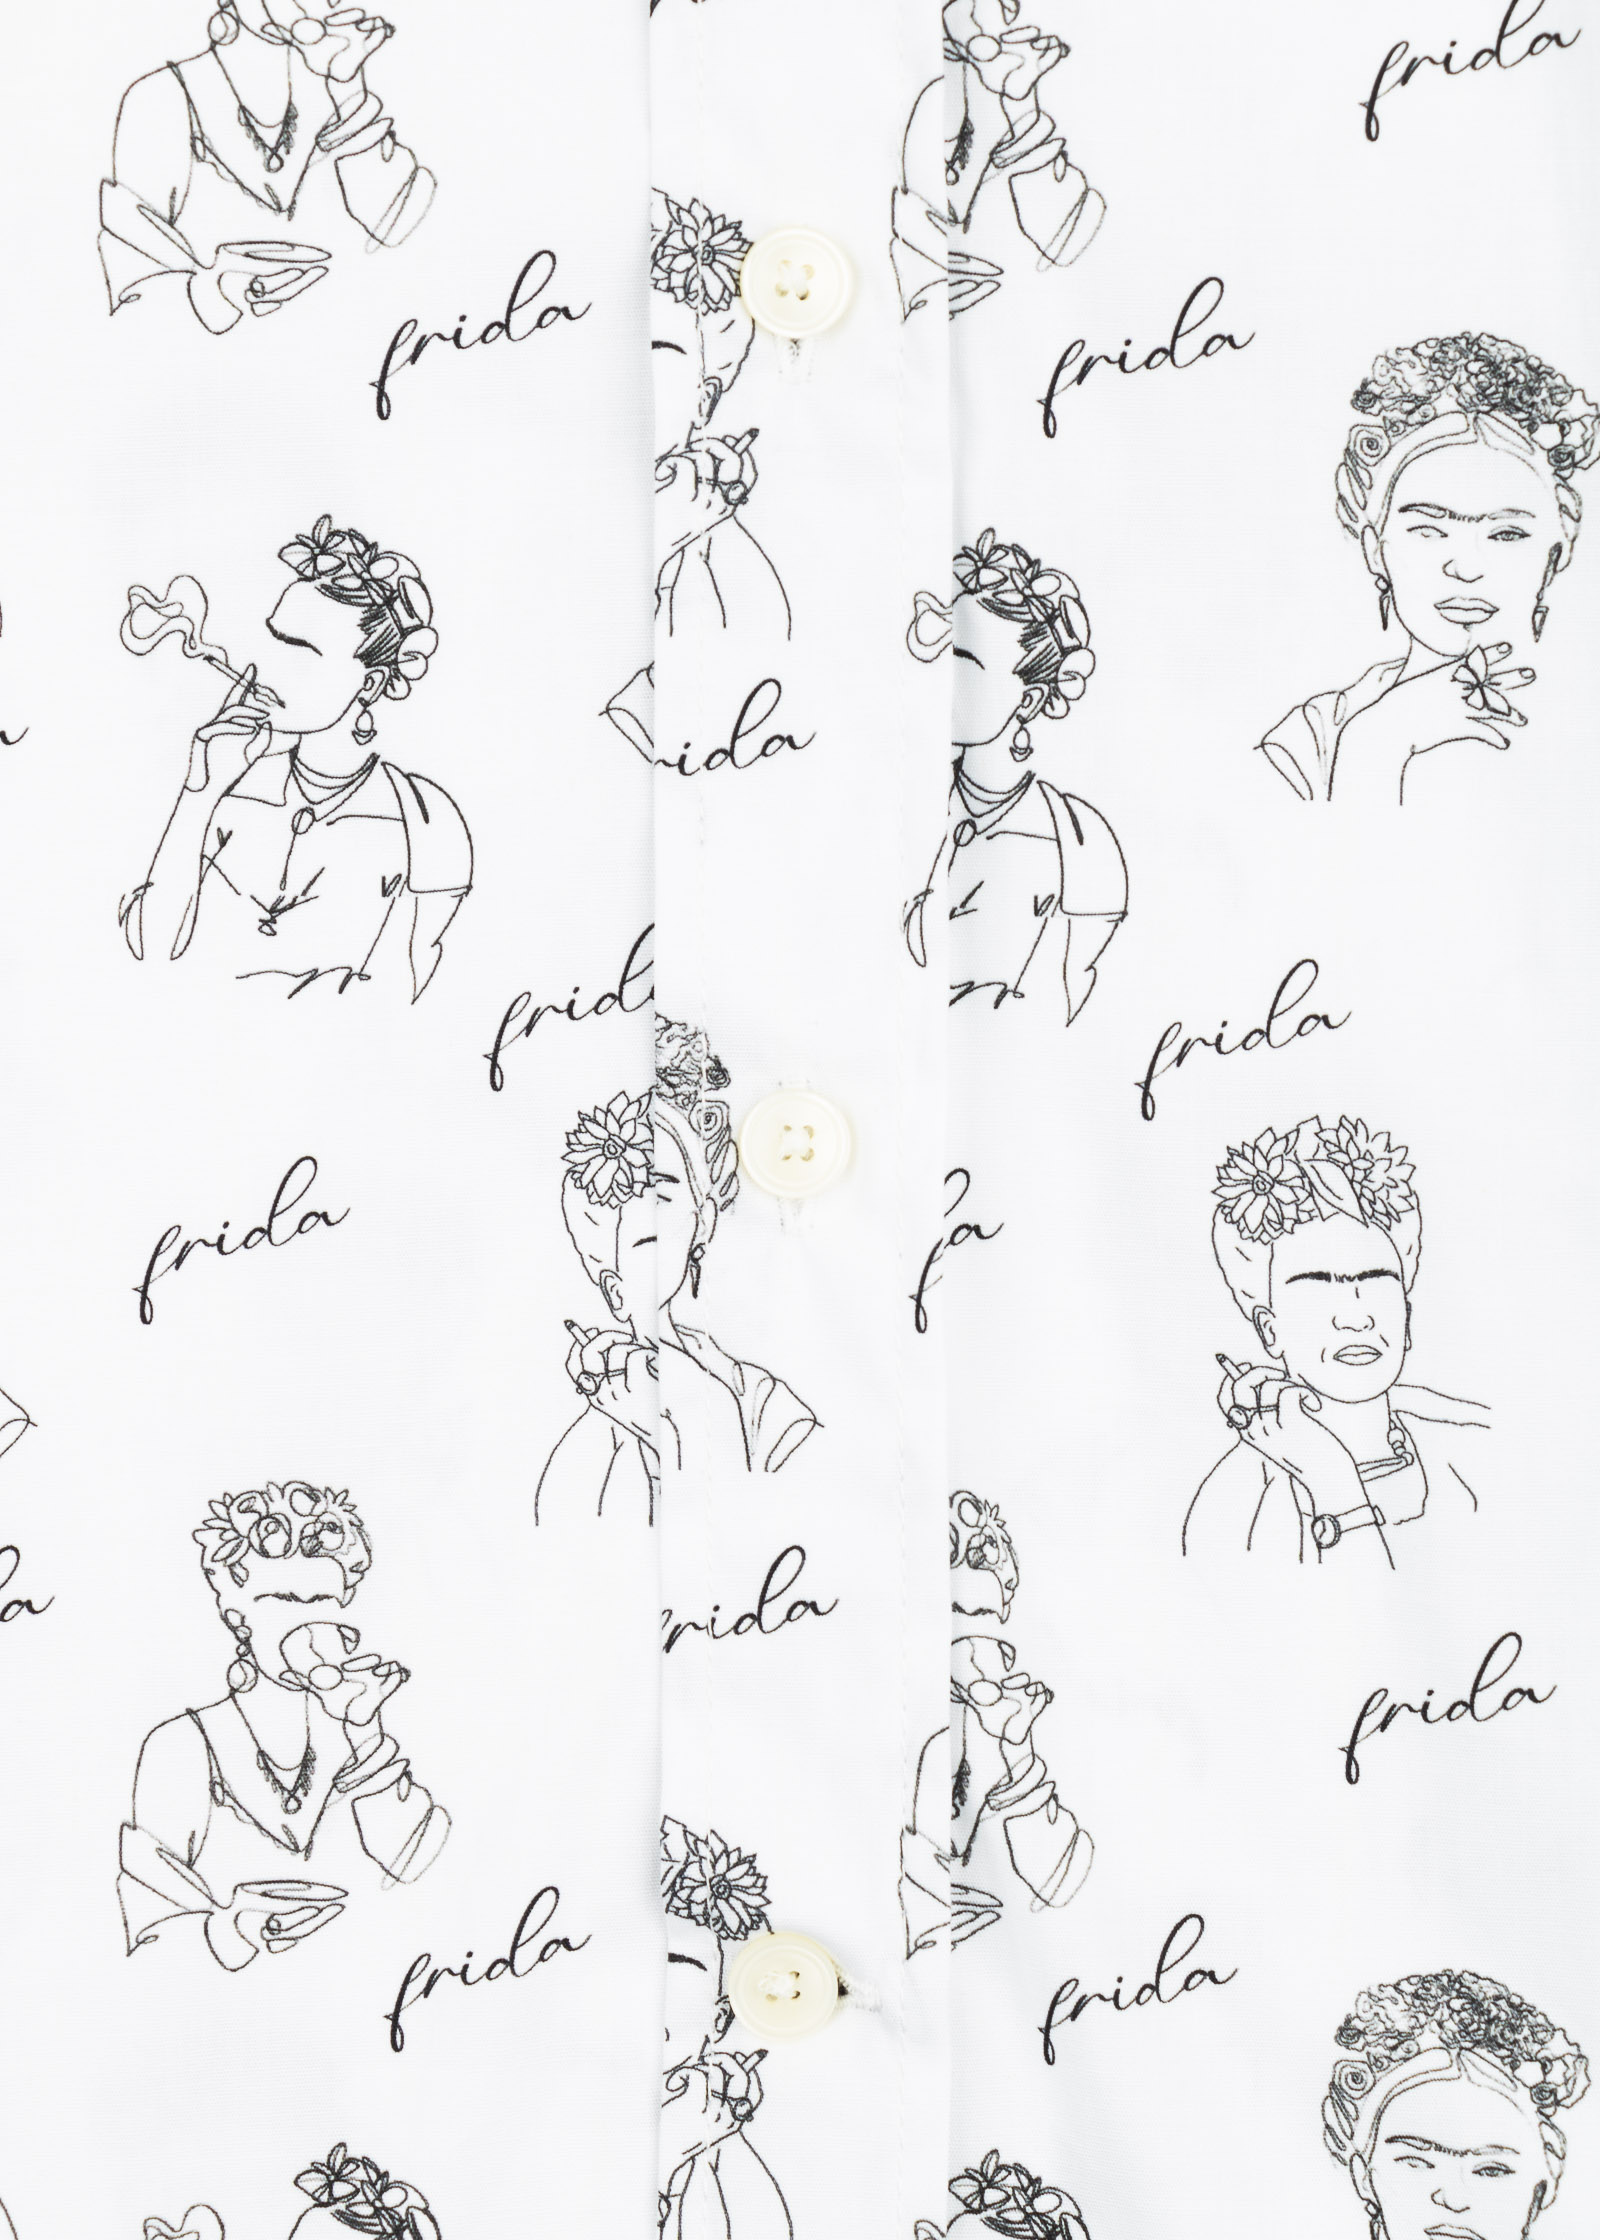 frida
frida
frida
ida
frid
frida
frida
a
frida
frida
frida
frida